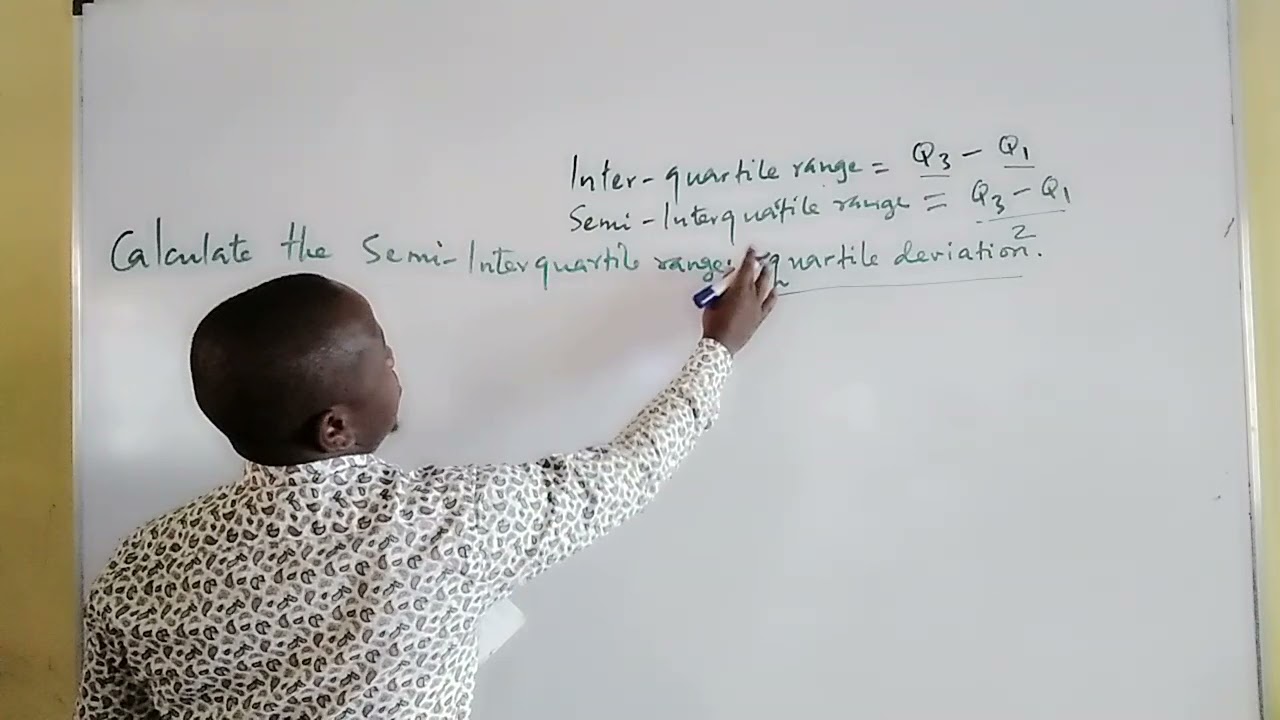 Inter-quartile range = Q3 - Q1
Semi-Interquatile range = Q3 - Q1
2
Calculate the Semi-Interquartile range quartile deviation.